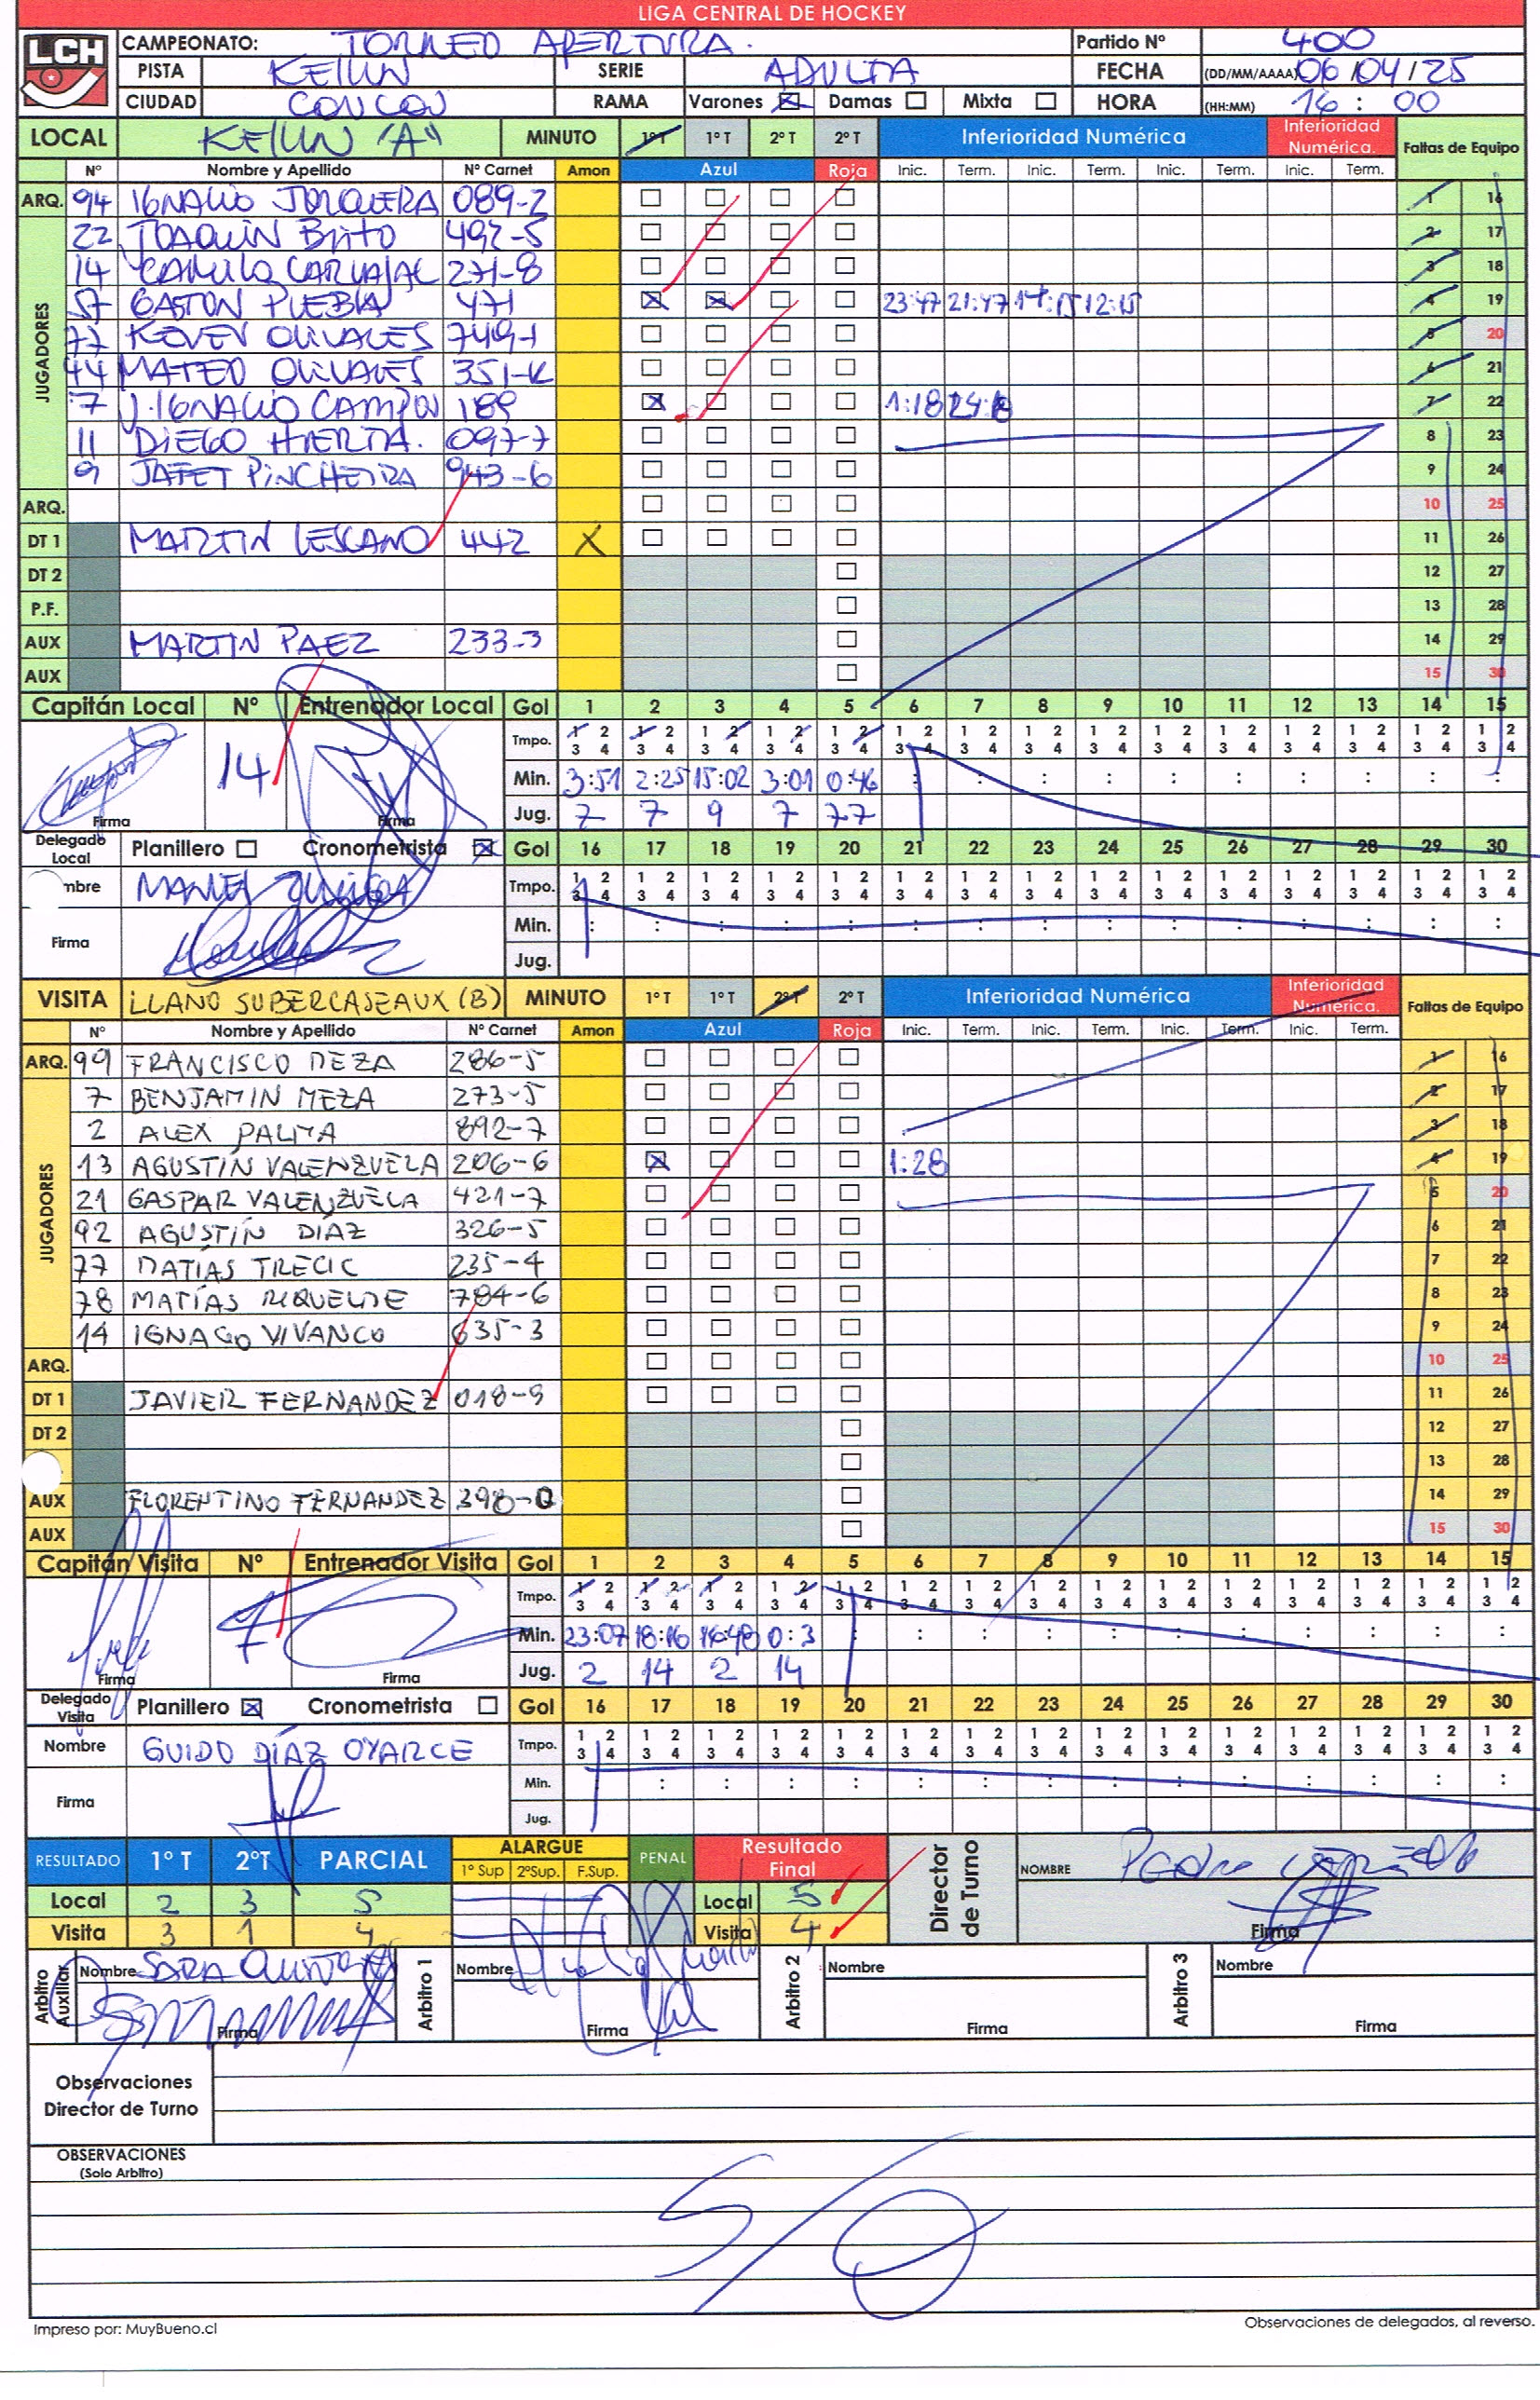 LIGA CENTRAL DE HOCKEY
LCH
CAMPEONATO: TORNEO APERTURA. Partido Nº 400
PISTA KEILUN SERIE ADULTA FECHA (DD/MM/AAAA) 06/04/25
CIUDAD CONCON RAMA Varones Damas Mixta HORA (HH:MM) 16:00
LOCAL KEILUN "A" MINUTO 1º T 1º T 2º T 2º T Inferioridad Numérica Inferioridad Numérica. Faltas de Equipo
Nº Nombre y Apellido Nº Carnet Amon Azul Roja Inic. Term. Inic. Term. Inic. Term. Inic. Term.
ARQ. 94 IGNACIO JORQUERA 089-2 1 16
JUGADORES
22 JOAQUIN Brito 492-5 2 17
14 CAMILO CARVAJAL 271-8 3 18
57 GASTON PUEBLA 471 23:47 21:47 14:15 12:15 4 19
77 KEVEN OLIVARES 749-1 5 20
44 MATEO OLIVARES 351-K 6 21
7 J. IGNACIO CAMPOS 189 1:18 24:18 7 22
11 DIEGO HUERTA. 097-7 8 23
9 JAFET PINCHEIRA 943-6 9 24
ARQ. 10 25
DT 1 MARTIN LESCANO 442 X 11 26
DT 2 12 27
P.F. 13 28
AUX MARTIN PAEZ 233-3 14 29
AUX 15 30
Capitán Local Nº Entrenador Local Gol 1 2 3 4 5 6 7 8 9 10 11 12 13 14 15
Tmpo. 1 2 1 2 1 2 1 2 1 2 1 2 1 2 1 2 1 2 1 2 1 2 1 2 1 2 1 2 1 2
3 4 3 4 3 4 3 4 3 4 3 4 3 4 3 4 3 4 3 4 3 4 3 4 3 4 3 4 3 4
14 Min. 3:51 2:25 15:02 3:01 0:46 : : : : : : : : : :
Firma Firma Jug. 7 7 9 7 77
Delegado Local Planillero Cronometrista Gol 16 17 18 19 20 21 22 23 24 25 26 27 28 29 30
mbre MANUEL Tmpo. 1 2 1 2 1 2 1 2 1 2 1 2 1 2 1 2 1 2 1 2 1 2 1 2 1 2 1 2 1 2
3 4 3 4 3 4 3 4 3 4 3 4 3 4 3 4 3 4 3 4 3 4 3 4 3 4 3 4 3 4
Firma Min. : : : : : : : : : : : : : :
Jug.
VISITA LLANO SUBERCASEAUX (B) MINUTO 1º T 1º T 2º T 2º T Inferioridad Numérica Inferioridad Numérica. Faltas de Equipo
Nº Nombre y Apellido Nº Carnet Amon Azul Roja Inic. Term. Inic. Term. Inic. Term. Inic. Term.
ARQ. 99 FRANCISCO DEZA 286-5 1 16
JUGADORES
7 BENJAMIN MEZA 273-5 2 17
2 ALEX PALMA 892-7 3 18
13 AGUSTIN VALENZUELA 206-6 1:28 4 19
21 GASPAR VALENZUELA 421-7 5 20
92 AGUSTÍN DÍAZ 326-5 6 21
77 MATÍAS TRECIC 235-4 7 22
78 MATÍAS RIQUELME 784-6 8 23
14 IGNACIO VIVANCO 635-3 9 24
ARQ. 10 25
DT 1 JAVIER FERNANDEZ 018-9 11 26
DT 2 12 27
13 28
AUX FLORENTINO FERNANDEZ 398-0 14 29
AUX 15 30
Capitán Visita Nº Entrenador Visita Gol 1 2 3 4 5 6 7 8 9 10 11 12 13 14 15
Tmpo. 1 2 1 2 1 2 1 2 1 2 1 2 1 2 1 2 1 2 1 2 1 2 1 2 1 2 1 2 1 2
3 4 3 4 3 4 3 4 3 4 3 4 3 4 3 4 3 4 3 4 3 4 3 4 3 4 3 4 3 4
7 Min. 23:07 18:16 14:48 0:3 : : : : : : : : : : :
Firma Firma Jug. 2 14 2 14
Delegado Visita Planillero Cronometrista Gol 16 17 18 19 20 21 22 23 24 25 26 27 28 29 30
Nombre GUIDO DÍAZ OYARCE Tmpo. 1 2 1 2 1 2 1 2 1 2 1 2 1 2 1 2 1 2 1 2 1 2 1 2 1 2 1 2 1 2
3 4 3 4 3 4 3 4 3 4 3 4 3 4 3 4 3 4 3 4 3 4 3 4 3 4 3 4 3 4
Firma Min. : : : : : : : : : : : : : :
Jug.
RESULTADO 1º T 2ºT PARCIAL ALARGUE 1º Sup 2ºSup. F.Sup. PENAL Resultado Final Director de Turno NOMBRE Pedro
Local 2 3 5 Local 5
Visita 3 1 4 Visita 4 Firma
Arbitro Auxiliar Nombre SARA Arbitro 1 Nombre Arbitro 2 Nombre Arbitro 3 Nombre
Firma Firma Firma Firma
Observaciones
Director de Turno
OBSERVACIONES
(Solo Arbitro)
S/O
Impreso por: MuyBueno.cl Observaciones de delegados, al reverso.